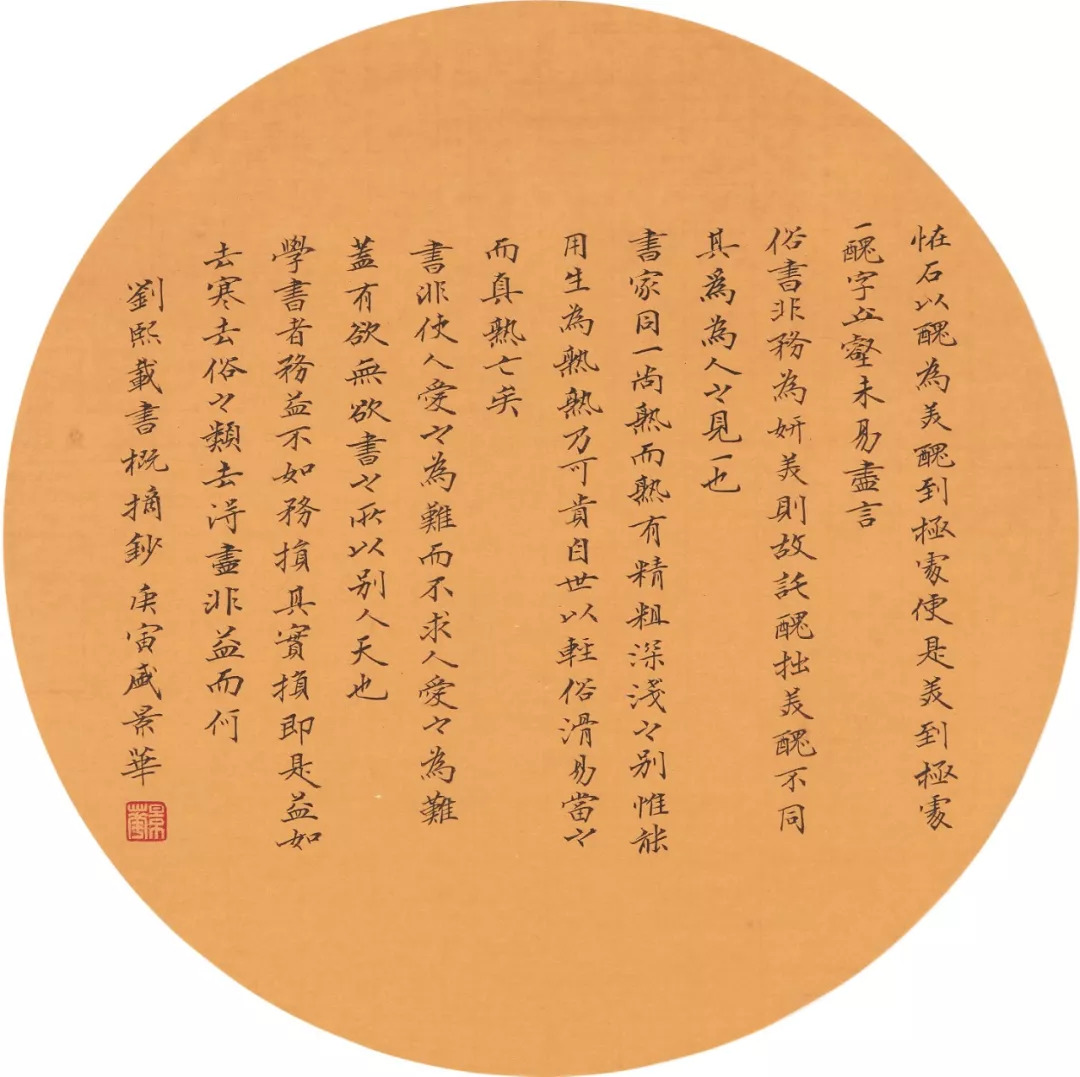 恠石以醜為美醜到極處便是美到極處
一醜字丘壑未易盡言
俗書非務為妍美則故託醜拙美醜不同
其為為人之見一也
書家同一尚熟而熟有精粗深淺之別惟能
用生為熟熟乃可貴自世以輕俗滑易當之
而真熟亡矣
書非使人愛之為難而不求人愛之為難
蓋有欲無欲書之所以別人天也
學書者務益不如務損其實損即是益如
去寒去俗之類去得盡非益而何
劉熙載書概摘鈔 庚寅盛景華
景華